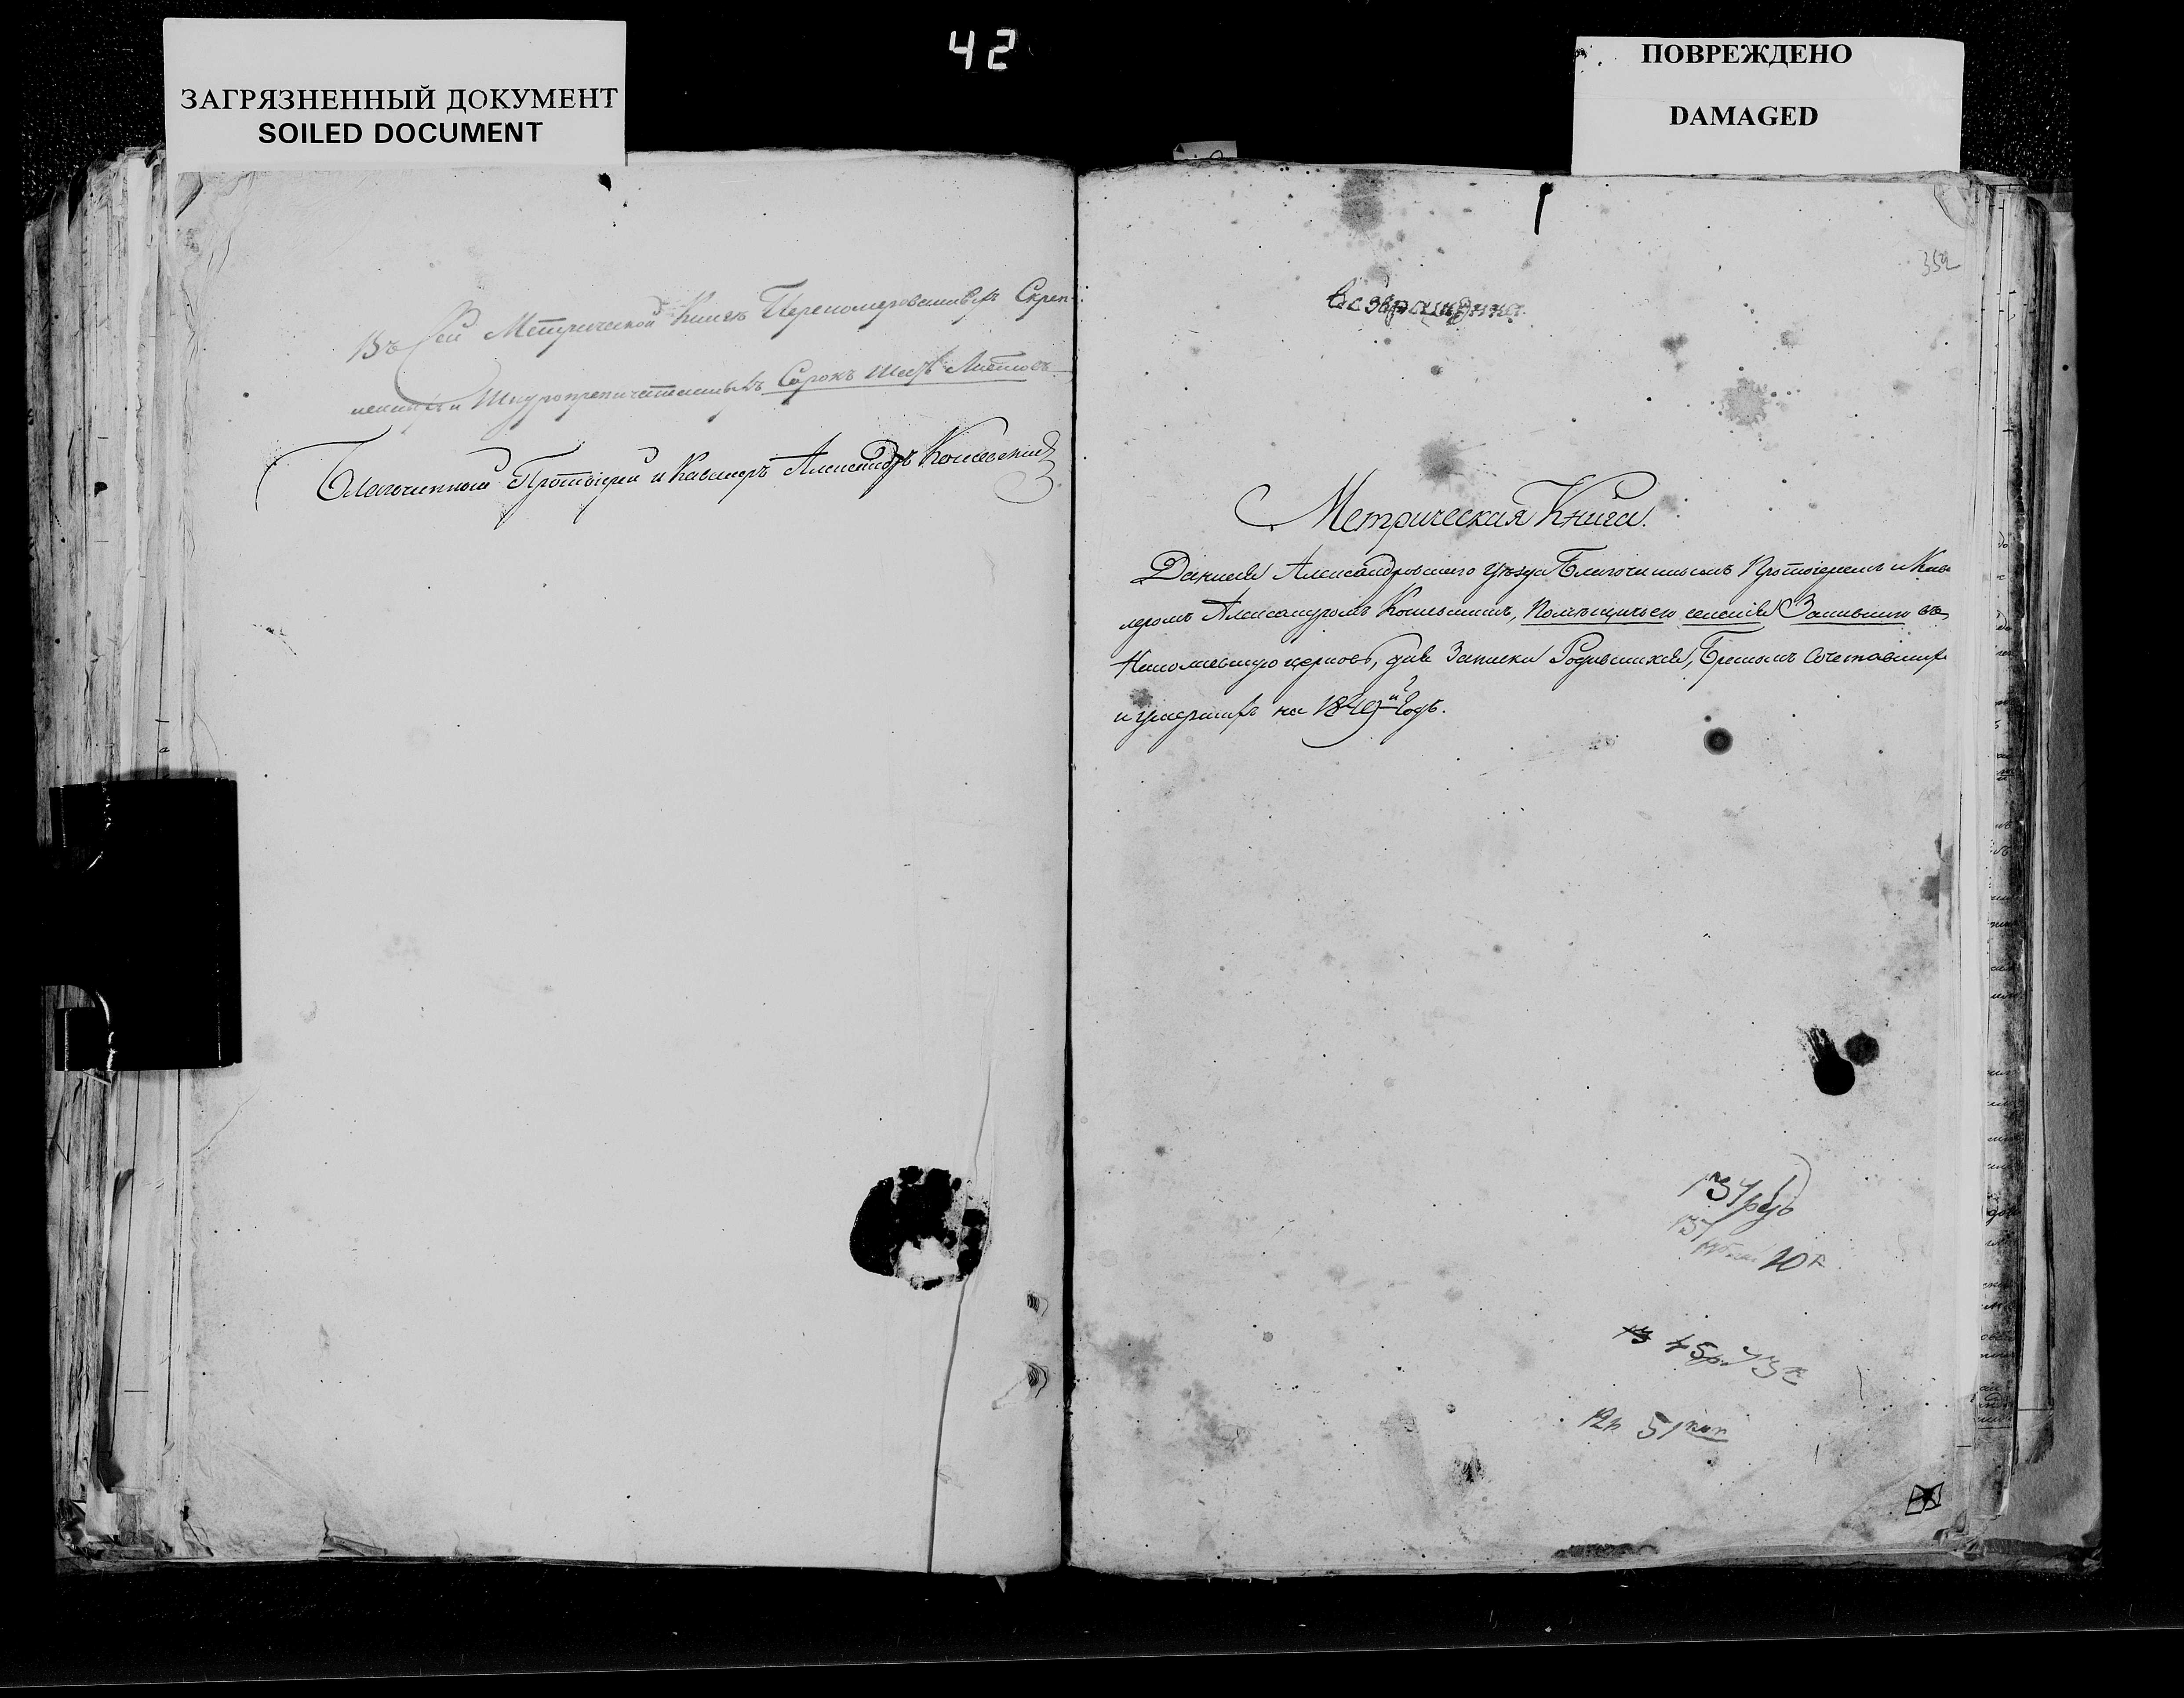 42
ЗАГРЯЗНЕННЫЙ ДОКУМЕНТ
SOILED DOCUMENT
ПОВРЕЖДЕНО
DAMAGED
Въ Сей Метрической Книгѣ Перенумерованныхъ Скреп-
ленныхъ и Шнуропрепечатанныхъ Сорокъ Шесть Листовъ
Благочинный Протоіерей и Кавалеръ Александръ
352
Метрическая Книга.
Данная Александровскаго Уѣзда Благочиннымъ Протоіереемъ и Кава
леромъ Александромъ Помѣщичьего селенія въ
Николаевскую церковь, для Записки Родившихся, Бракомъ Сочетавших
и умершихъ на 1849й Годъ.
137 руб
137
10 к
12р 51 коп